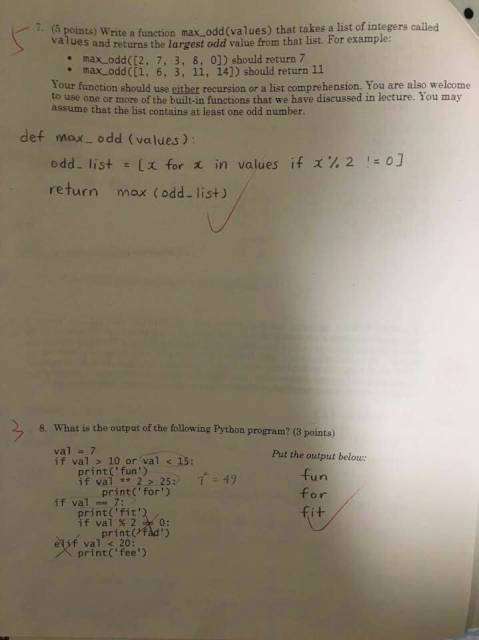 5
7. (5 points) Write a function max_odd(values) that takes a list of integers called
values and returns the largest odd value from that list. For example:
• max_odd([2, 7, 3, 8, 0]) should return 7
• max_odd([1, 6, 3, 11, 14]) should return 11
Your function should use either recursion or a list comprehension. You are also welcome
to use one or more of the built-in functions that we have discussed in lecture. You may
assume that the list contains at least one odd number.
def max_odd (values):
odd_list = [x for x in values if x % 2 != 0]
return max (odd_list)
3
8. What is the output of the following Python program? (3 points)
val = 7
if val > 10 or val < 15:
print('fun')
if val ** 2 > 25: 7² = 49
print('for')
if val == 7:
print('fit')
if val % 2 == 0:
print('fad')
elif val < 20:
print('fee')
Put the output below:
fun
for
fit